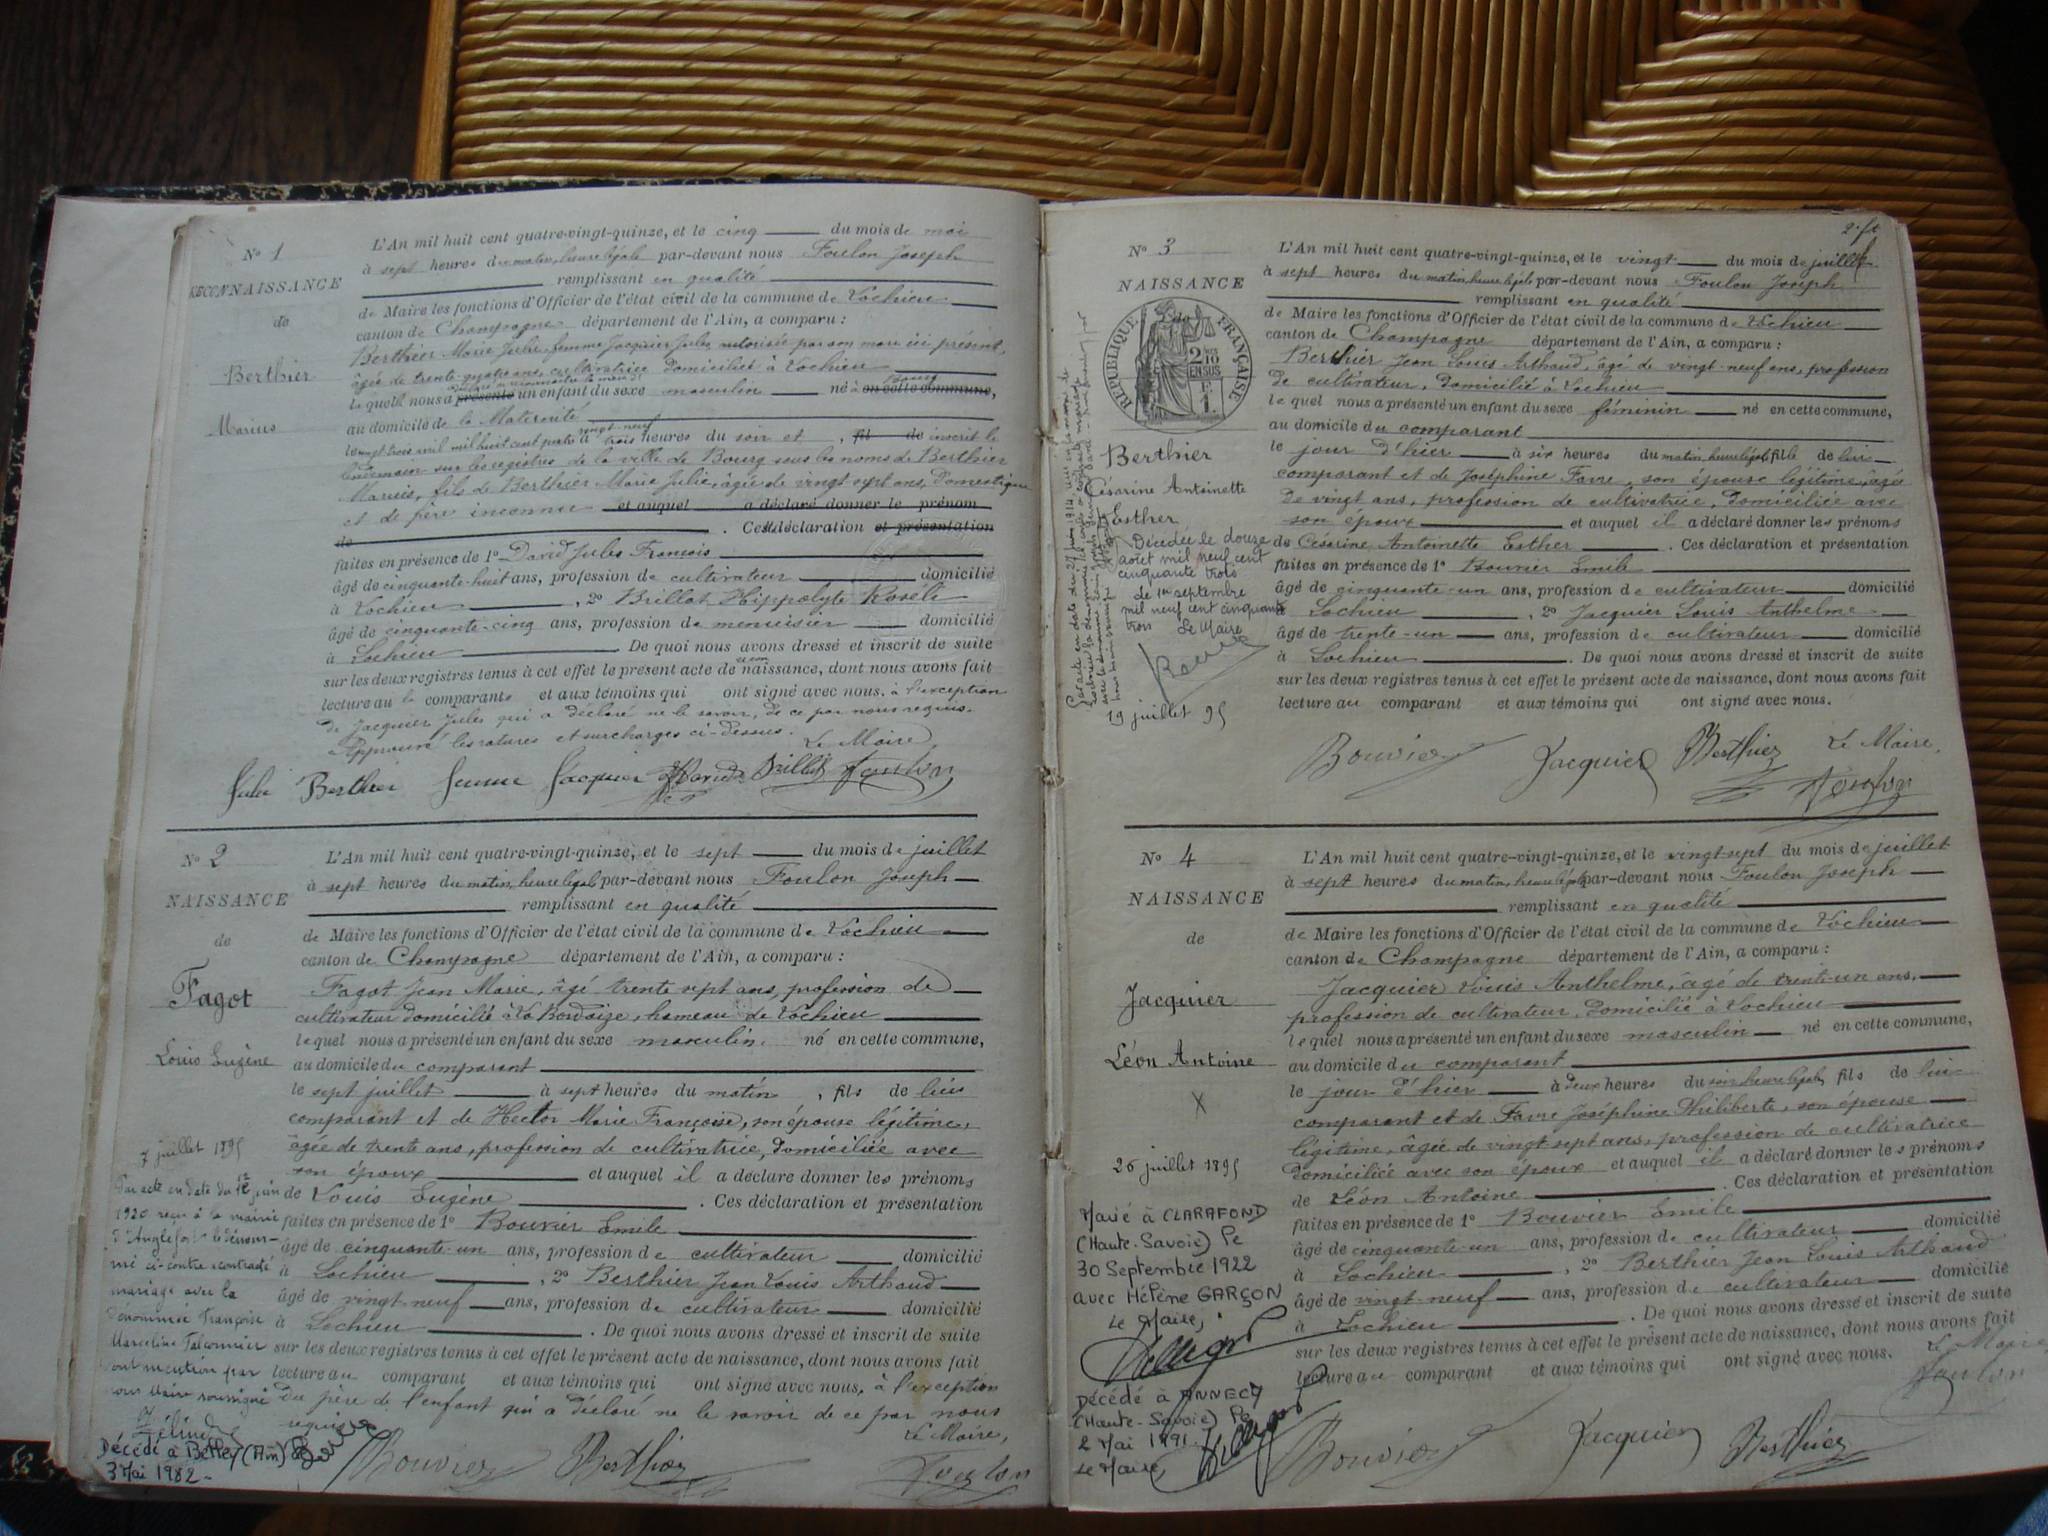 No 1
RECONNAISSANCE
de
Berthier
Marius
L'An mil huit cent quatre-vingt-quinze, et le cinq du mois de mai
à sept heures du matin, heure légale par-devant nous Foulon Joseph
remplissant en qualité
de Maire les fonctions d'Officier de l'état civil de la commune de Lochieu
canton de Champagne département de l'Ain, a comparu :
Berthier Marie Julie, femme Jacquier Jules, autorisée par son mari ici présent,
âgée de trente-quatre ans, cultivatrice domiciliée à Lochieu
déclaré reconnaître
Bourg
laquelle nous a présenté un enfant du sexe masculin né à en cette commune,
au domicile de la Maternité
vingt-neuf
le vingt trois mil huit cent quatre à trois heures du soir et , fil de inscrit le
lendemain sur les registres de la ville de Bourg sous les noms de Berthier
Marius, fils de Berthier Marie Julie, âgée de vingt sept ans, Domestique
et de père inconnu et auquel a déclaré donner le prénom
de . Cette déclaration et présentation
faites en présence de 1o David Jules François
âgé de cinquante-huit ans, profession de cultivateur domicilié
à Lochieu , 2o Brillat Hippolyte Rosélie
âgé de cinquante-cinq ans, profession de menuisier domicilié
à Lochieu De quoi nous avons dressé et inscrit de suite
sur les deux registres tenus à cet effet le présent acte de naissance, dont nous avons fait
lecture au comparants et aux témoins qui ont signé avec nous, à l'exception
de Jacquier Jules qui a déclaré ne le savoir, de ce par nous requis.
Approuvé les ratures et surcharges ci-dessus. Le Maire,
Julie Berthier femme Jacquier David Brillat Foulon
No 2
NAISSANCE
de
Fagot
Louis Eugène
L'An mil huit cent quatre-vingt-quinze, et le sept du mois de juillet
à sept heures du matin, heure légale par-devant nous Foulon Joseph
remplissant en qualité
de Maire les fonctions d'Officier de l'état civil de la commune de Lochieu
canton de Champagne département de l'Ain, a comparu :
Fagot Jean Marie, âgé trente sept ans, profession de
cultivateur domicilié à hameau de Lochieu
lequel nous a présenté un enfant du sexe masculin né en cette commune,
au domicile du comparant
le sept juillet à sept heures du matin , fils de lui
comparant et de Hector Marie Françoise, son épouse légitime,
âgée de trente ans, profession de cultivatrice, domiciliée avec
son époux et auquel il a déclaré donner les prénoms
de Louis Eugène . Ces déclaration et présentation
faites en présence de 1o Bouvier Emile
âgé de cinquante-un ans, profession de cultivateur domicilié
à Lochieu , 2o Berthier Jean Louis Arthaud
âgé de vingt-neuf ans, profession de cultivateur domicilié
à Lochieu . De quoi nous avons dressé et inscrit de suite
sur les deux registres tenus à cet effet le présent acte de naissance, dont nous avons fait
lecture au comparant et aux témoins qui ont signé avec nous, à l'exception
du père de l'enfant qui a déclaré ne le savoir de ce par nous
requis
Le Maire,
Bouvier Berthier Foulon
7 juillet 1895
Par acte en date du 12 juin
1920 reçu à la mairie
d'Anglefort le dénom-
mé ci-contre a contracté
mariage avec la
dénommée Françoise
Marceline Falconnier
dont mention par
nous Maire soussigné
Décédé à Belley (Ain) le
3 Mai 1982
2. ft
No 3
NAISSANCE
RÉPUBLIQUE FRANÇAISE
2/10
EN SUS
Berthier
Césarine Antoinette
Esther
Décédée le douze
août mil neuf cent
cinquante trois
de 1er septembre
mil neuf cent cinquante
trois Le Maire
19 juillet 95
L'An mil huit cent quatre-vingt-quinze, et le vingt du mois de juillet
à sept heures du matin, heure légale par-devant nous Foulon Joseph
remplissant en qualité
de Maire les fonctions d'Officier de l'état civil de la commune de Lochieu
canton de Champagne département de l'Ain, a comparu :
Berthier Jean Louis Arthaud, âgé de vingt-neuf ans, profession
de cultivateur, domicilié à Lochieu
lequel nous a présenté un enfant du sexe féminin né en cette commune,
au domicile du comparant
le jour d'hier à six heures du matin, heure légale fille de lui
comparant et de Joséphine Favre, son épouse légitime, âgée
de vingt ans, profession de cultivatrice, domiciliée avec
son époux et auquel il a déclaré donner les prénoms
de Césarine Antoinette Esther . Ces déclaration et présentation
faites en présence de 1o Bouvier Emile
âgé de cinquante-un ans, profession de cultivateur domicilié
à Lochieu , 2o Jacquier Louis Anthelme
âgé de trente-un ans, profession de cultivateur domicilié
à Lochieu . De quoi nous avons dressé et inscrit de suite
sur les deux registres tenus à cet effet le présent acte de naissance, dont nous avons fait
lecture au comparant et aux témoins qui ont signé avec nous.
Bouvier Jacquier Berthier Le Maire,
Foulon
No 4
NAISSANCE
de
Jacquier
Léon Antoine
X
26 juillet 1895
Marié à CLARAFOND
(Haute-Savoie) le
30 Septembre 1922
avec Hélène GARÇON
Le Maire,
Décédé à ANNECY
(Haute-Savoie) le
2 Mai 1991.
Le Maire,
L'An mil huit cent quatre-vingt-quinze, et le vingt sept du mois de juillet
à sept heures du matin, heure légale par-devant nous Foulon Joseph
remplissant en qualité
de Maire les fonctions d'Officier de l'état civil de la commune de Lochieu
canton de Champagne département de l'Ain, a comparu :
Jacquier Louis Anthelme, âgé de trente-un ans,
profession de cultivateur, domicilié à Lochieu
lequel nous a présenté un enfant du sexe masculin né en cette commune,
au domicile du comparant
le jour d'hier à deux heures du soir, heure légale, fils de lui
comparant et de Favre Joséphine Philiberte, son épouse
légitime, âgée de vingt sept ans, profession de cultivatrice
domiciliée avec son époux et auquel il a déclaré donner les prénoms
de Léon Antoine . Ces déclaration et présentation
faites en présence de 1o Bouvier Emile
âgé de cinquante-un ans, profession de cultivateur domicilié
à Lochieu , 2o Berthier Jean Louis Arthaud
âgé de vingt-neuf ans, profession de cultivateur domicilié
à Lochieu . De quoi nous avons dressé et inscrit de suite
sur les deux registres tenus à cet effet le présent acte de naissance, dont nous avons fait
lecture au comparant et aux témoins qui ont signé avec nous. Le Maire
Foulon
Bouvier Jacquier Berthier